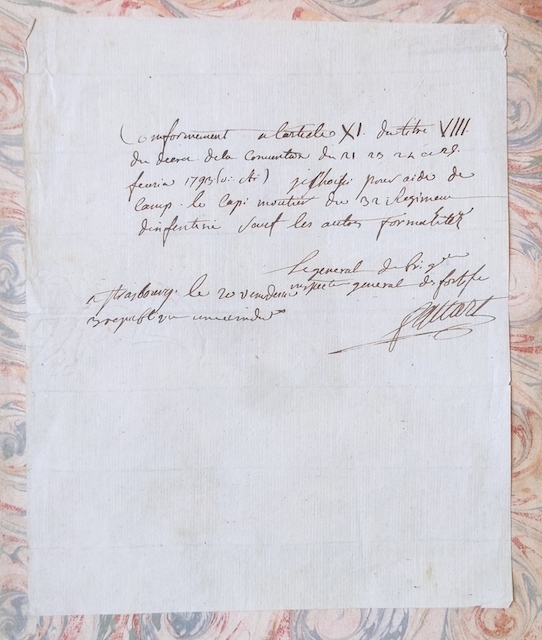 Conformement a larticle XI du titre VIII
du decret de la Convention du 21 23 24 et 25
fevrier 1793 (v. st.) je choisis pour aide de
Camp le Capi moutier du 32 Regiment
dinfenterie sauf les autres formalités
Le general de brig
inspecteur general des fortifs
a Strasbourg le 20 vendem
3 republique une indiv